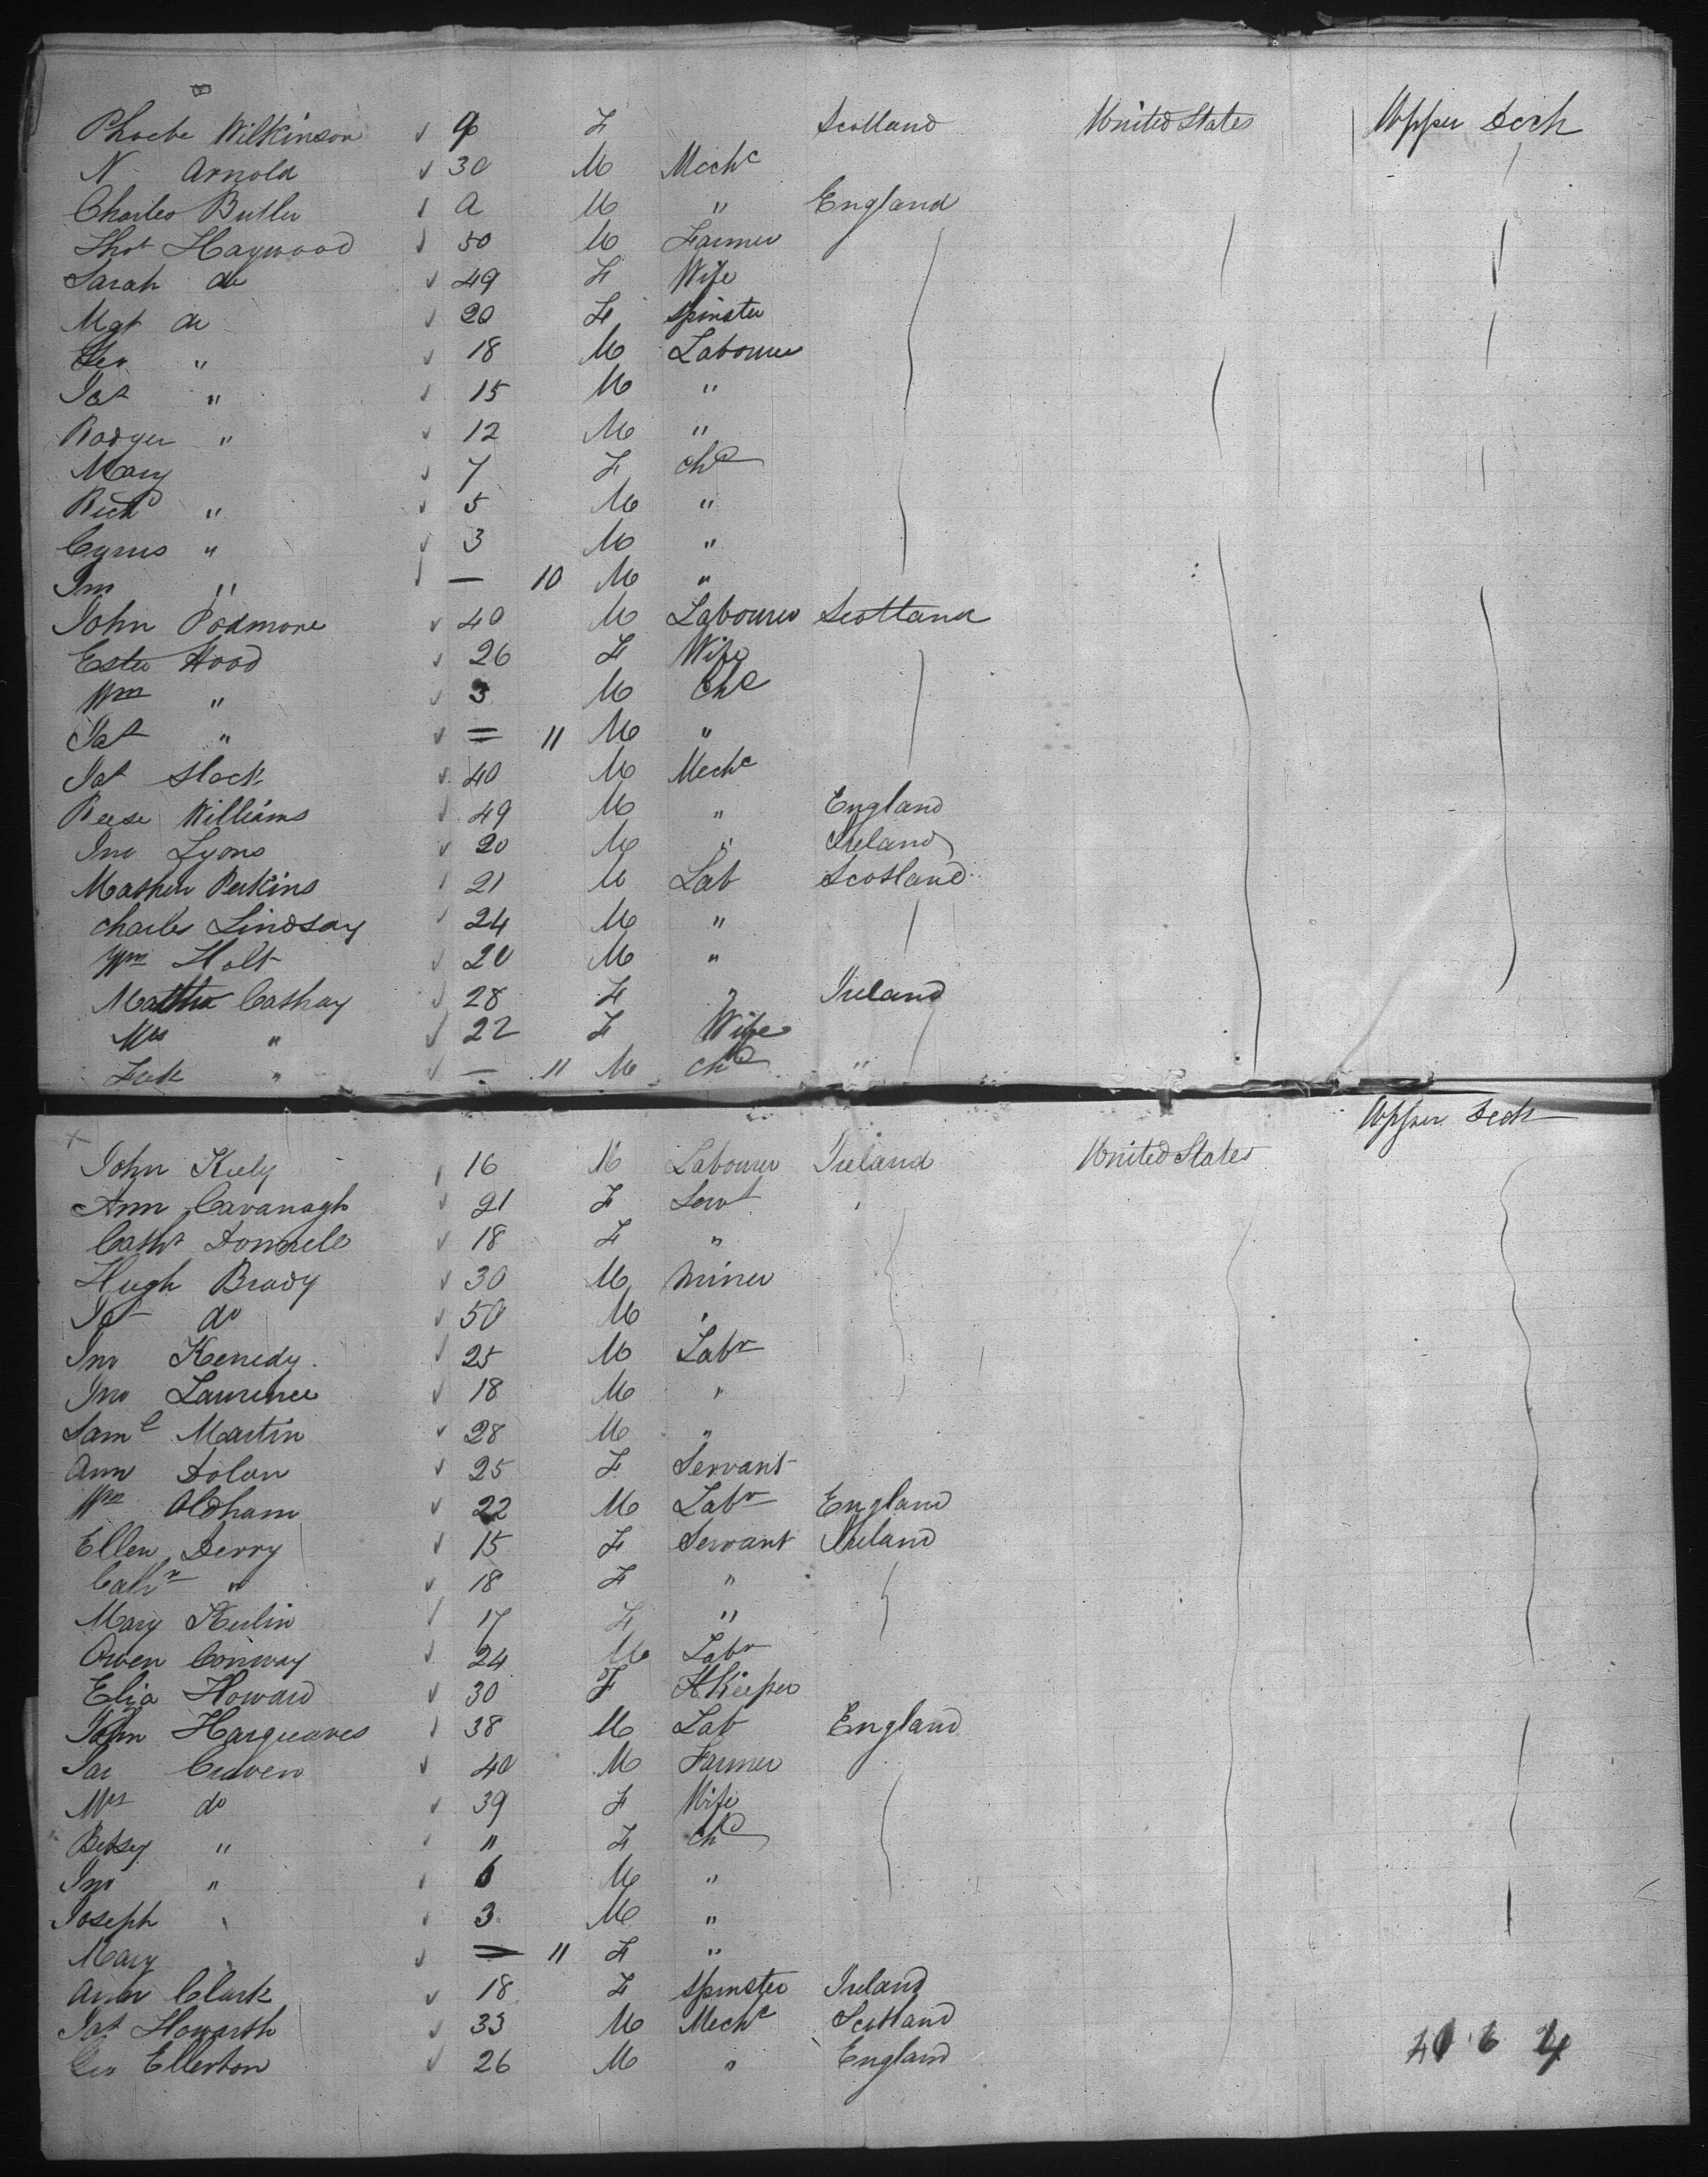 Phoebe Wilkinson 9 F Scotland United States Upper Deck
N Arnold 30 M Mechc
Charles Butler a M " England
Thos Haywood 50 M Farmer
Sarah do 49 F Wife
Mgt do 20 F Spinster
Geo " 18 M Labourer
Jas " 15 M "
Rodger " 12 M "
Mary 7 F Chd
Richd " 5 M "
Cyrus " 3 M "
Jno " — 10 M "
John Podmore 40 M Labourer Scotland
Ester Hood 26 F Wife
Wm " 3 M Chd
Jas " = 11 M "
Jas Slack 40 M Mechc
Reese Williams 49 M " England
Jno Lyons 20 M " Ireland
Mathew Perkins 21 M Lab Scotland
Charles Lindsay 24 M "
Wm Holt 20 M "
Martha Cashay 28 F " Ireland
Mrs " 22 F Wife
" — 11 M Chd "
Upper Deck
John Kiely 16 M Labourer Ireland United States
Ann Cavanagh 21 F Servt
Caths Donnell 18 F "
Hugh Brady 30 M Miner
Jas do 50 M "
Jno Kenedy 25 M Labr
Jno Laurence 18 M "
Saml Martin 28 M "
Ann Dolan 25 F Servant
Wm Oldham 22 M Labr England
Ellen Derry 15 F Servant Ireland
Cathn " 18 F "
Mary Kulin 17 F "
Owen Conway 24 M Labr
Eliza Howard 30 F H.Keeper
John Hargreaves 38 M Lab England
Jas Craven 40 M Farmer
Mrs do 39 F Wife
Betsey " 11 F Chd
Jno " 6 M "
Joseph " 3 M "
Mary = 11 F "
Ann Clark 18 F Spinster Ireland
Jas Howarth 33 M Mechc Scotland
Geo Ellerton 26 M " England
41 6 4